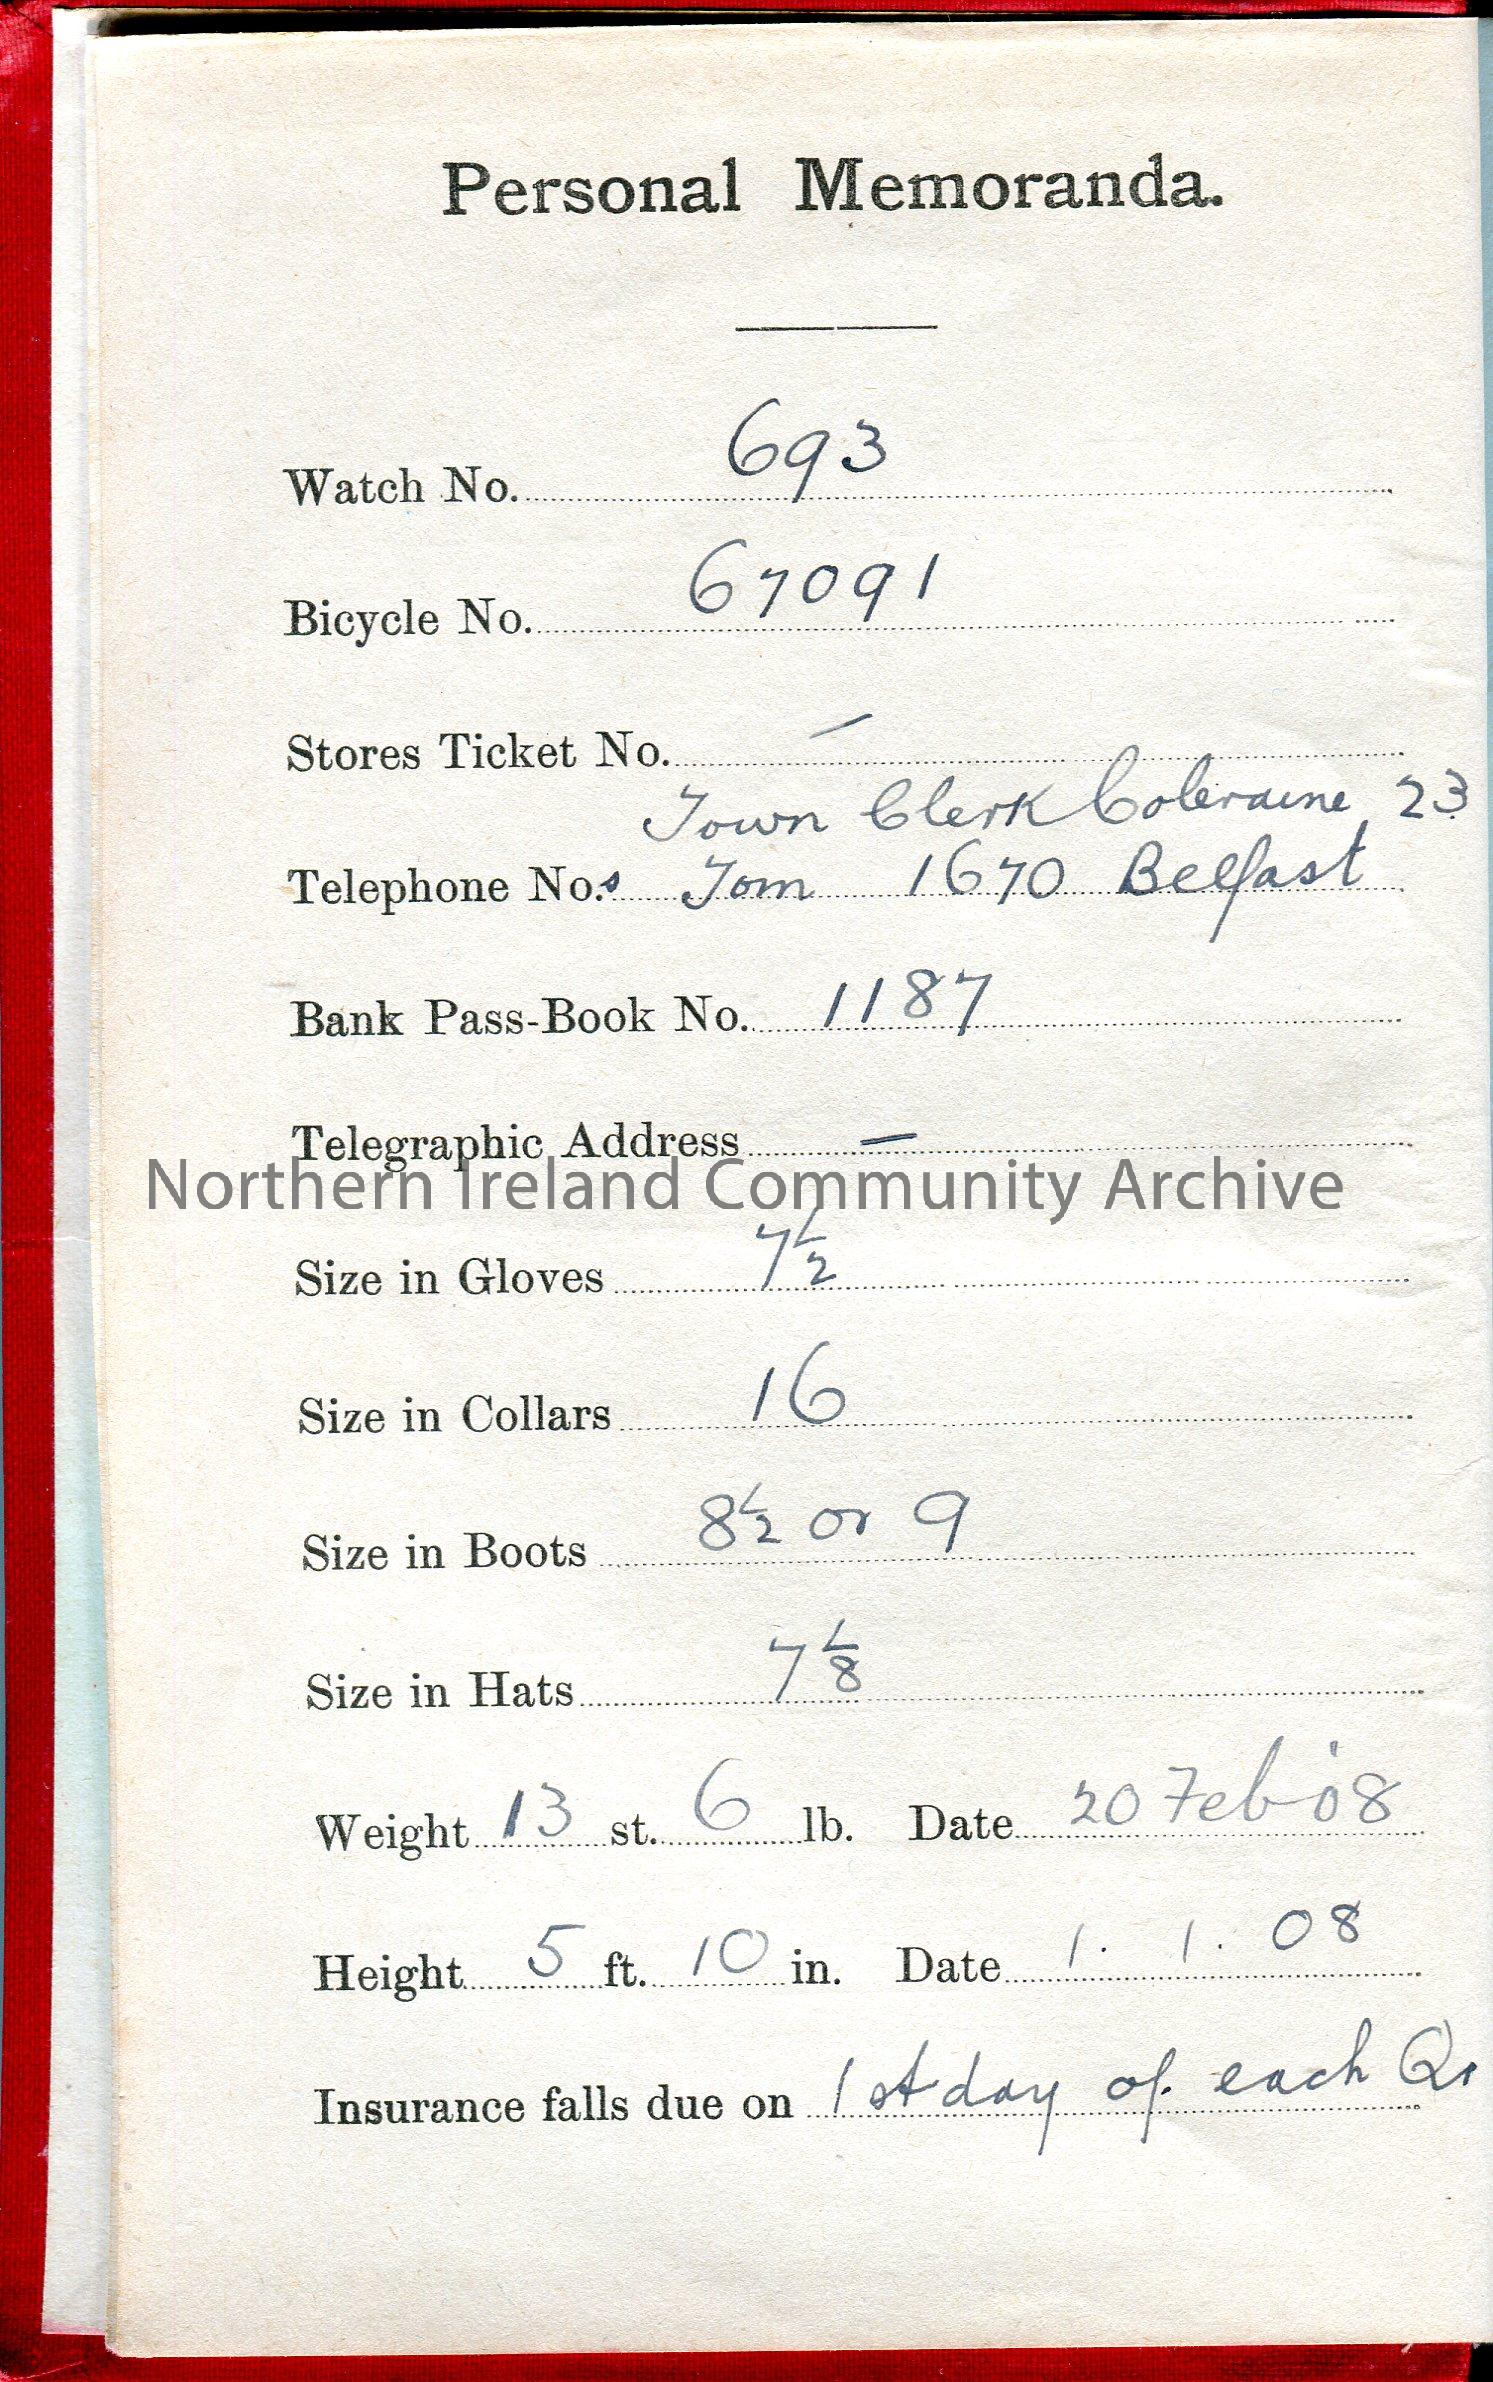 Personal Memoranda.
Watch No. 693
Bicycle No. 67091
Stores Ticket No. –
Town Clerk Coleraine 23
Telephone No.s Tom 1670 Belfast
Bank Pass-Book No. 1187
Telegraphic Address –
Northern Ireland Community Archive
Size in Gloves 7½
Size in Collars 16
Size in Boots 8½ or 9
Size in Hats 7⅛
Weight 13 st. 6 lb. Date 20 Feb '08
Height 5 ft. 10 in. Date 1. 1. 08
Insurance falls due on 1st day of each Qr